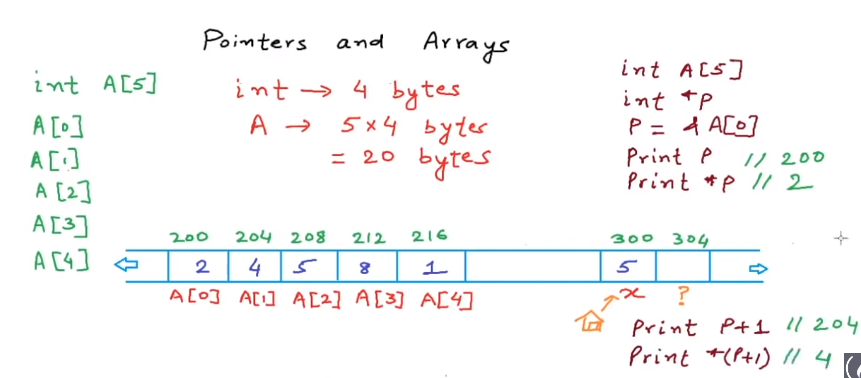 Pointers and Arrays
int A[5]
A[0]
A[1]
A[2]
A[3]
A[4]
int → 4 bytes
A → 5x4 bytes
= 20 bytes
int A[5]
int *P
P = &A[0]
Print P // 200
Print *P // 2
200 204 208 212 216 300 304
2 4 5 8 1 5
A[0] A[1] A[2] A[3] A[4] x ?
Print P+1 // 204
Print *(P+1) // 4